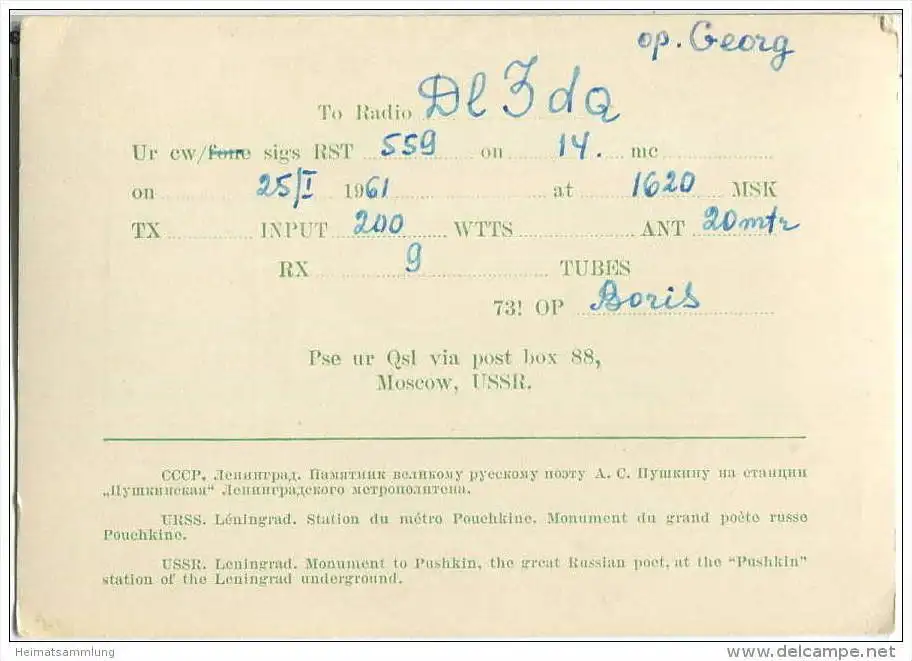 op. Georg
To Radio Dl3dQ
Ur cw/fone sigs RST 559 on 14. mc
on 25/I 1961 at 1620 MSK
TX INPUT 200 WTTS ANT 20mtr
RX 9 TUBES
73! OP Boris
Pse ur Qsl via post box 88,
Moscow, USSR.
СССР. Ленинград. Памятник великому русскому поэту А. С. Пушкину на станции
„Пушкинская“ Ленинградского метрополитена.
URSS. Léningrad. Station du métro Pouchkine. Monument du grand poète russe
Pouchkine.
USSR. Leningrad. Monument to Pushkin, the great Russian poet, at the “Pushkin”
station of the Leningrad underground.
Heimatsammlung
www.delcampe.net